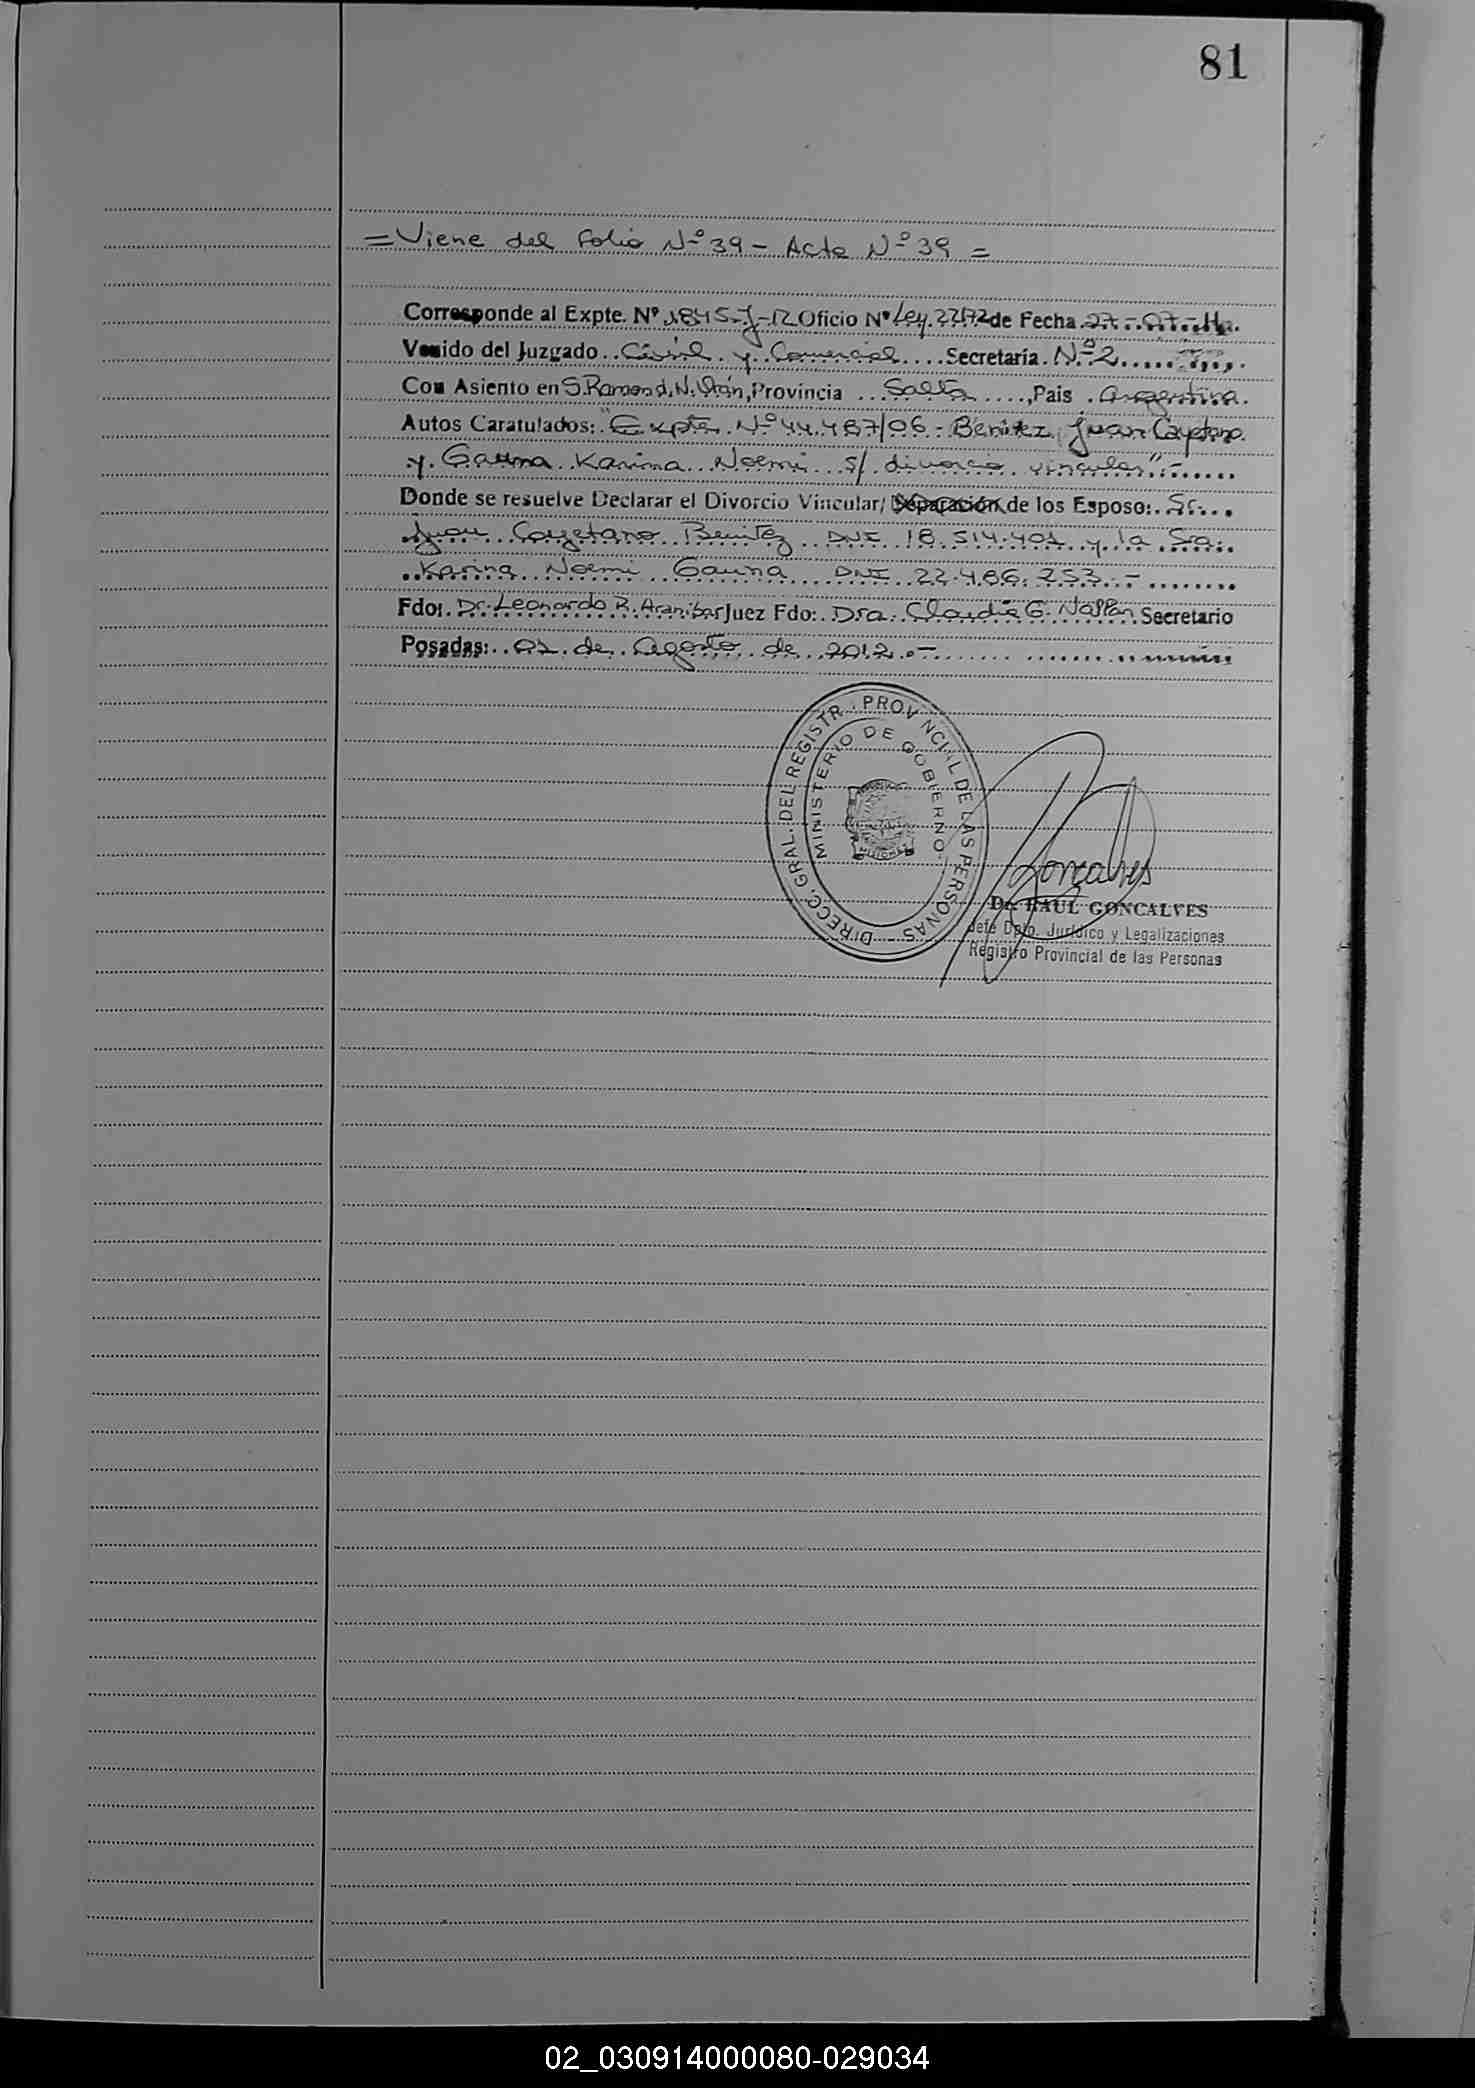 81
= Viene del Folio Nº 39 - Acta Nº 39 =
Corresponde al Expte. Nº 1845-J-12 Oficio Nº Ley. 22172 de Fecha 27-07-
Venido del Juzgado Civil y Comercial Secretaría Nº 2
Con Asiento en S. Ramon d. N. Orán, Provincia Salta, Pais Argentina.
Autos Caratulados: "Expte. Nº 44.487/06 - Benitez, Juan Cayetano
y Gauna Karina Noemi s/ divorcio vincular".-
Donde se resuelve Declarar el Divorcio Vincular/ Separación de los Esposo: Sr.
Juan Cayetano Benitez DNI 18.514.401 y la Sra.
Karina Noemi Gauna DNI 22.486.253.-
Fdo: Dr. Leonardo R. Aranibar Juez Fdo: Dra. Claudia G. Secretario
Posadas: 02 de Agosto de 2012.-
DIRECC. GRAL. DEL REGISTR. PROVINCIAL DE LAS PERSONAS
MINISTERIO DE GOBIERNO
MISIONES
Goncalves
Dr. RAUL GONCALVES
Jefe Dpto. Jurídico y Legalizaciones
Registro Provincial de las Personas
02_030914000080-029034